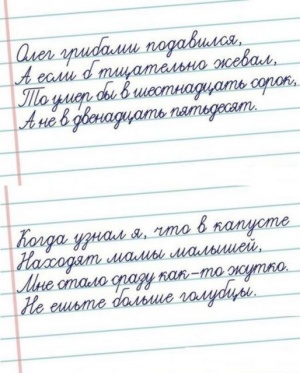 Олег грибами подавился,
А если б тщательно жевал,
То умер бы в шестнадцать сорок,
А не в двенадцать пятьдесят.
Когда узнал я, что в капусте
Находят мамы малышей,
Мне стало сразу как-то жутко.
Не ешьте больше голубцы.